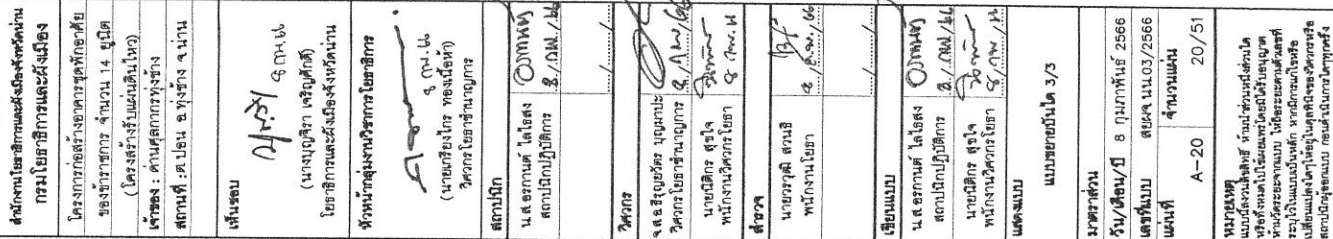 สำนักงานโยธาธิการและผังเมืองจังหวัดน่าน
กรมโยธาธิการและผังเมือง
โครงการก่อสร้างอาคารชุดพักอาศัย
ของข้าราชการ จำนวน 14 ยูนิต
(โครงสร้างรับแผ่นดินไหว)
เจ้าของ : ด่านศุลกากรทุ่งช้าง
สถานที่ : ต.ปอน อ.ทุ่งช้าง จ.น่าน
เห็นชอบ
8 กพ 66
(นางบุญจิรา เจริญศักดิ์)
โยธาธิการและผังเมืองจังหวัดน่าน
หัวหน้ากลุ่มงานวิชาการโยธาธิการ
8 กพ. 66
(นายเกรียงไกร ทองเนื้อห้า)
วิศวกรโยธาชำนาญการ
สถาปนิก
น.ส.อรกานต์ ไลไธสง
สถาปนิกปฏิบัติการ 8 / กพ. / 66
วิศวกร
บุญมาปะ
วิศวกรโยธาชำนาญการ
นายนิติกร สุขใจ
พนักงานวิศวกรโยธา 8 กพ. 66
สำรวจ
นายวรวุฒิ สวนธิ
พนักงานโยธา 8 / ก.พ. / 66
เขียนแบบ
น.ส.อรกานต์ ไลไธสง
สถาปนิกปฏิบัติการ 8 / กพ / 66
นายนิติกร สุขใจ
พนักงานวิศวกรโยธา
แสดงแบบ
แบบขยายบันได 3/3
มาตราส่วน
วัน/เดือน/ปี 8 กุมภาพันธ์ 2566
เลขที่แบบ สยผจ.นน.03/2566
แผ่นที่ จำนวนแผ่น
A-20 20/51
หมายเหตุ
แบบนี้สงวนลิขสิทธิ์ ห้ามนำส่วนหนึ่งส่วนใด
หรือทั้งหมดไปใช้เผยแพร่โดยมิได้รับอนุญาต
ห้ามวัดระยะจากแบบ ให้ถือระยะตามตัวเลขที่
ระบุไว้ในแบบเป็นหลัก หากมีการแก้ไขหรือ
เปลี่ยนแปลงใดๆให้อยู่ในดุลพินิจของวิศวกรหรือ
สถาปนิกผู้ออกแบบ ก่อนดำเนินการใดๆทุกครั้ง